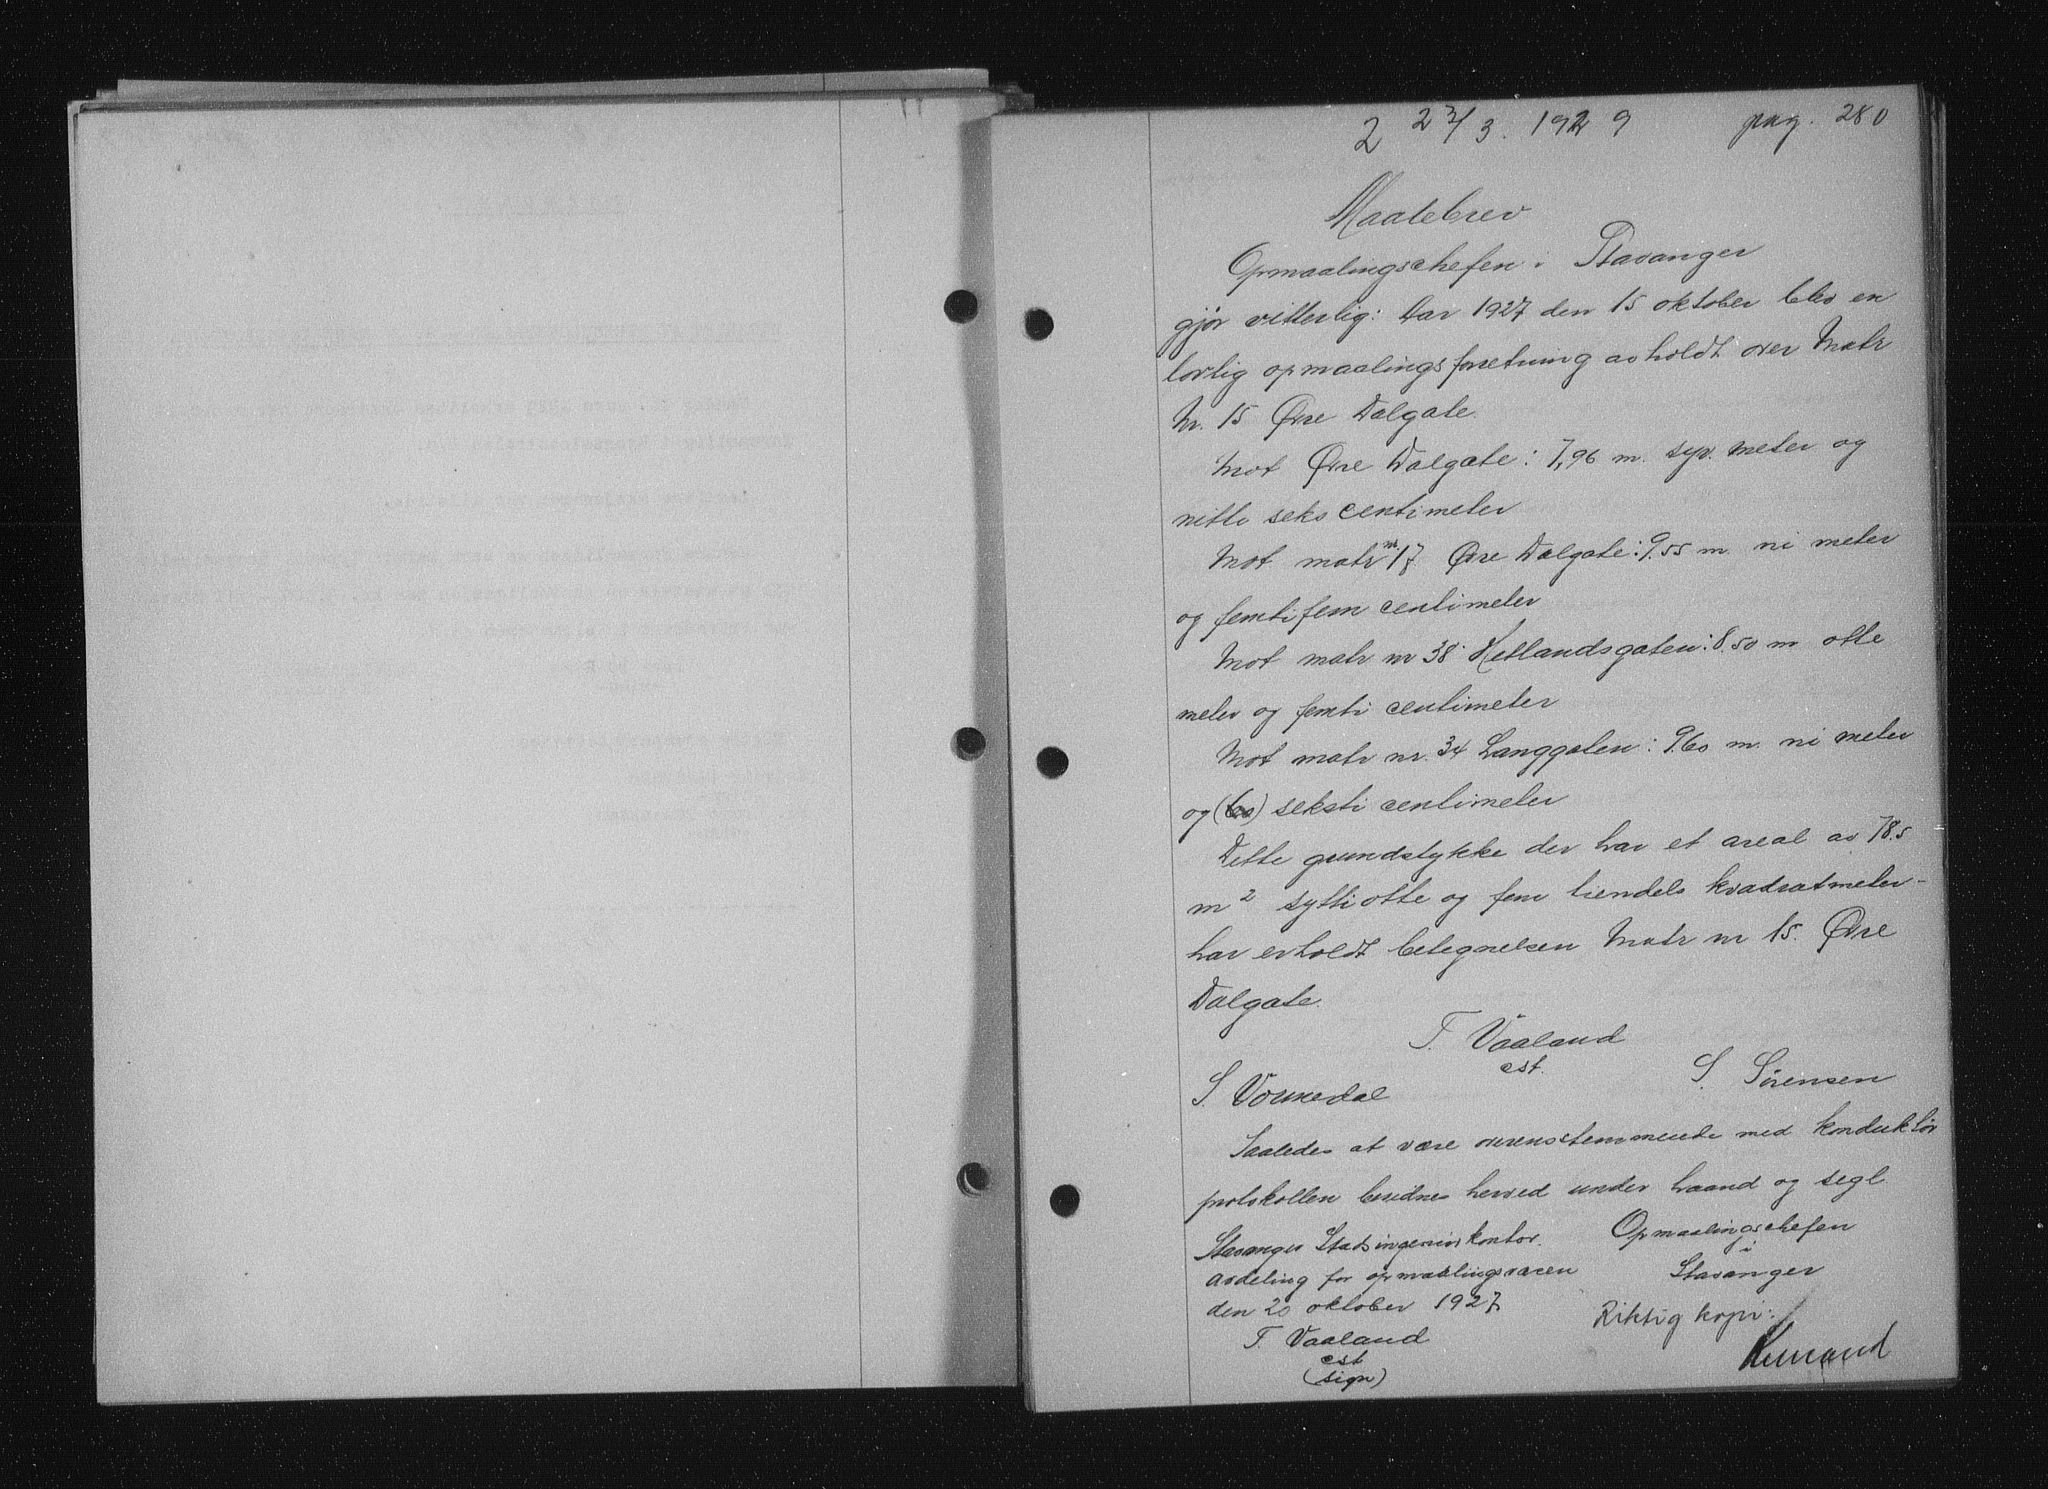 2 2⅔ 1929 pag. 280
Maalebrev
Opmaalingschefen i Stavanger
gjør vitterlig: Aar 1927 den 15 oktober blev en
lovlig opmaalingsforretning avholdt over Matr
Nr. 15 Øvre Dalgate.
Mot Øvre Dalgate: 7,96 m. syv. meter og
nitti seks centimeter
Mot matr nr 17 Øvre Dalgate: 9.55 m. ni meter
og femtifem centimeter
Mot matr nr 38 Hetlandsgaten: 8.50 m otte
meter og femti centimeter
Mot matr nr. 34 Langgaten: 9.60 m. ni meter
og (60) seksti centimeter
Dette grundstykke der har et areal av 78.5
m² sytti otte og fem tiendels kvadratmeter-
har erholdt betegnelsen Matr nr 15. Øvre
Dalgate.
T. Vaaland
cst.
S. Vormedal S. Sørensen
Saaledes at være overensstemmende med konduktør
protokollen bevidnes herved under haand og segl
Stavanger Stadsingeniørkontor. Opmaalingschefen
avdeling for opmaalingsvæsen i
den 20 oktober 1927 Stavanger
T. Vaaland Riktig kopi:
cst
(sign)